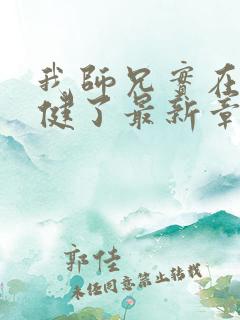 我師兄實在
健了最新章
郭佳
未经同意禁止转载